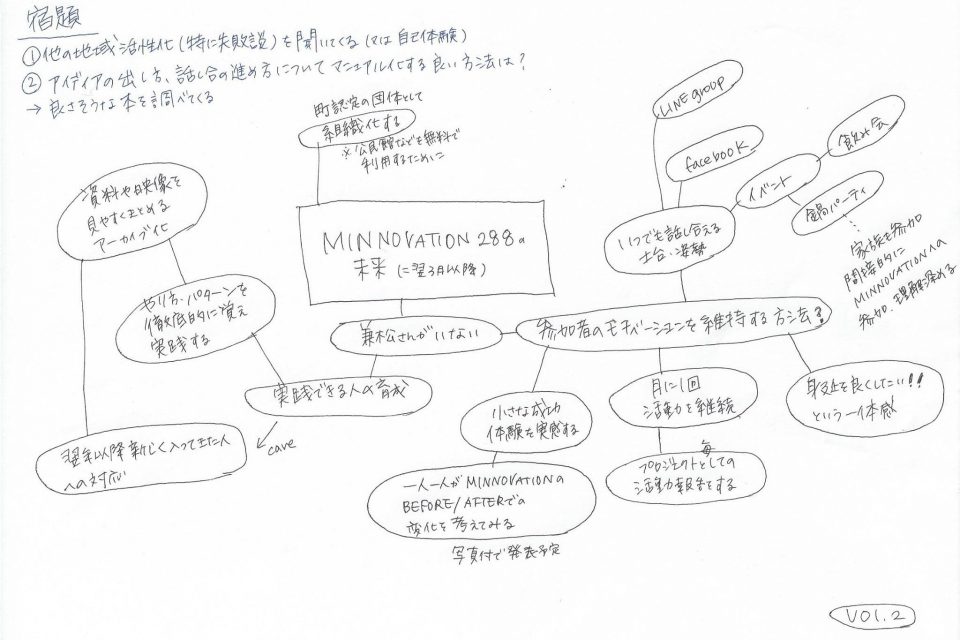 宿題
①他の地域活性化(特に失敗談)を聞いてくる(又は自己体験)
②アイディアの出し方、話し合の進め方についてマニュアル化する良い方法は?
→良さそうな本を調べてくる
町認定の団体として
組織化する
※公民館などを無料で
利用するために
LINE group
facebook
イベント
飲み会
鍋パーティ
家族を参加
間接的に
MINNOVATIONへの
参加、理解深める
いつでも話し合える
土台・姿勢
資料や映像を
見やすくまとめる
アーカイブ化
MINNOVATION 288の
未来(に翌3月以降)
やり方・パターンを
徹底的に覚え
実践する
兼松さんがいない
参加者のモチベーションを維持する方法?
実践できる人の育成
care
翌年以降新しく入ってきた人
への対応
小さな成功
体験を実感する
一人一人がMINNOVATIONの
BEFORE/AFTERでの
変化を考えてみる
写真付で発表予定
月に1回
活動を継続
毎
プロジェクトとしての
活動報告をする
身近を良くしたい!!
という一体感
VOl.2